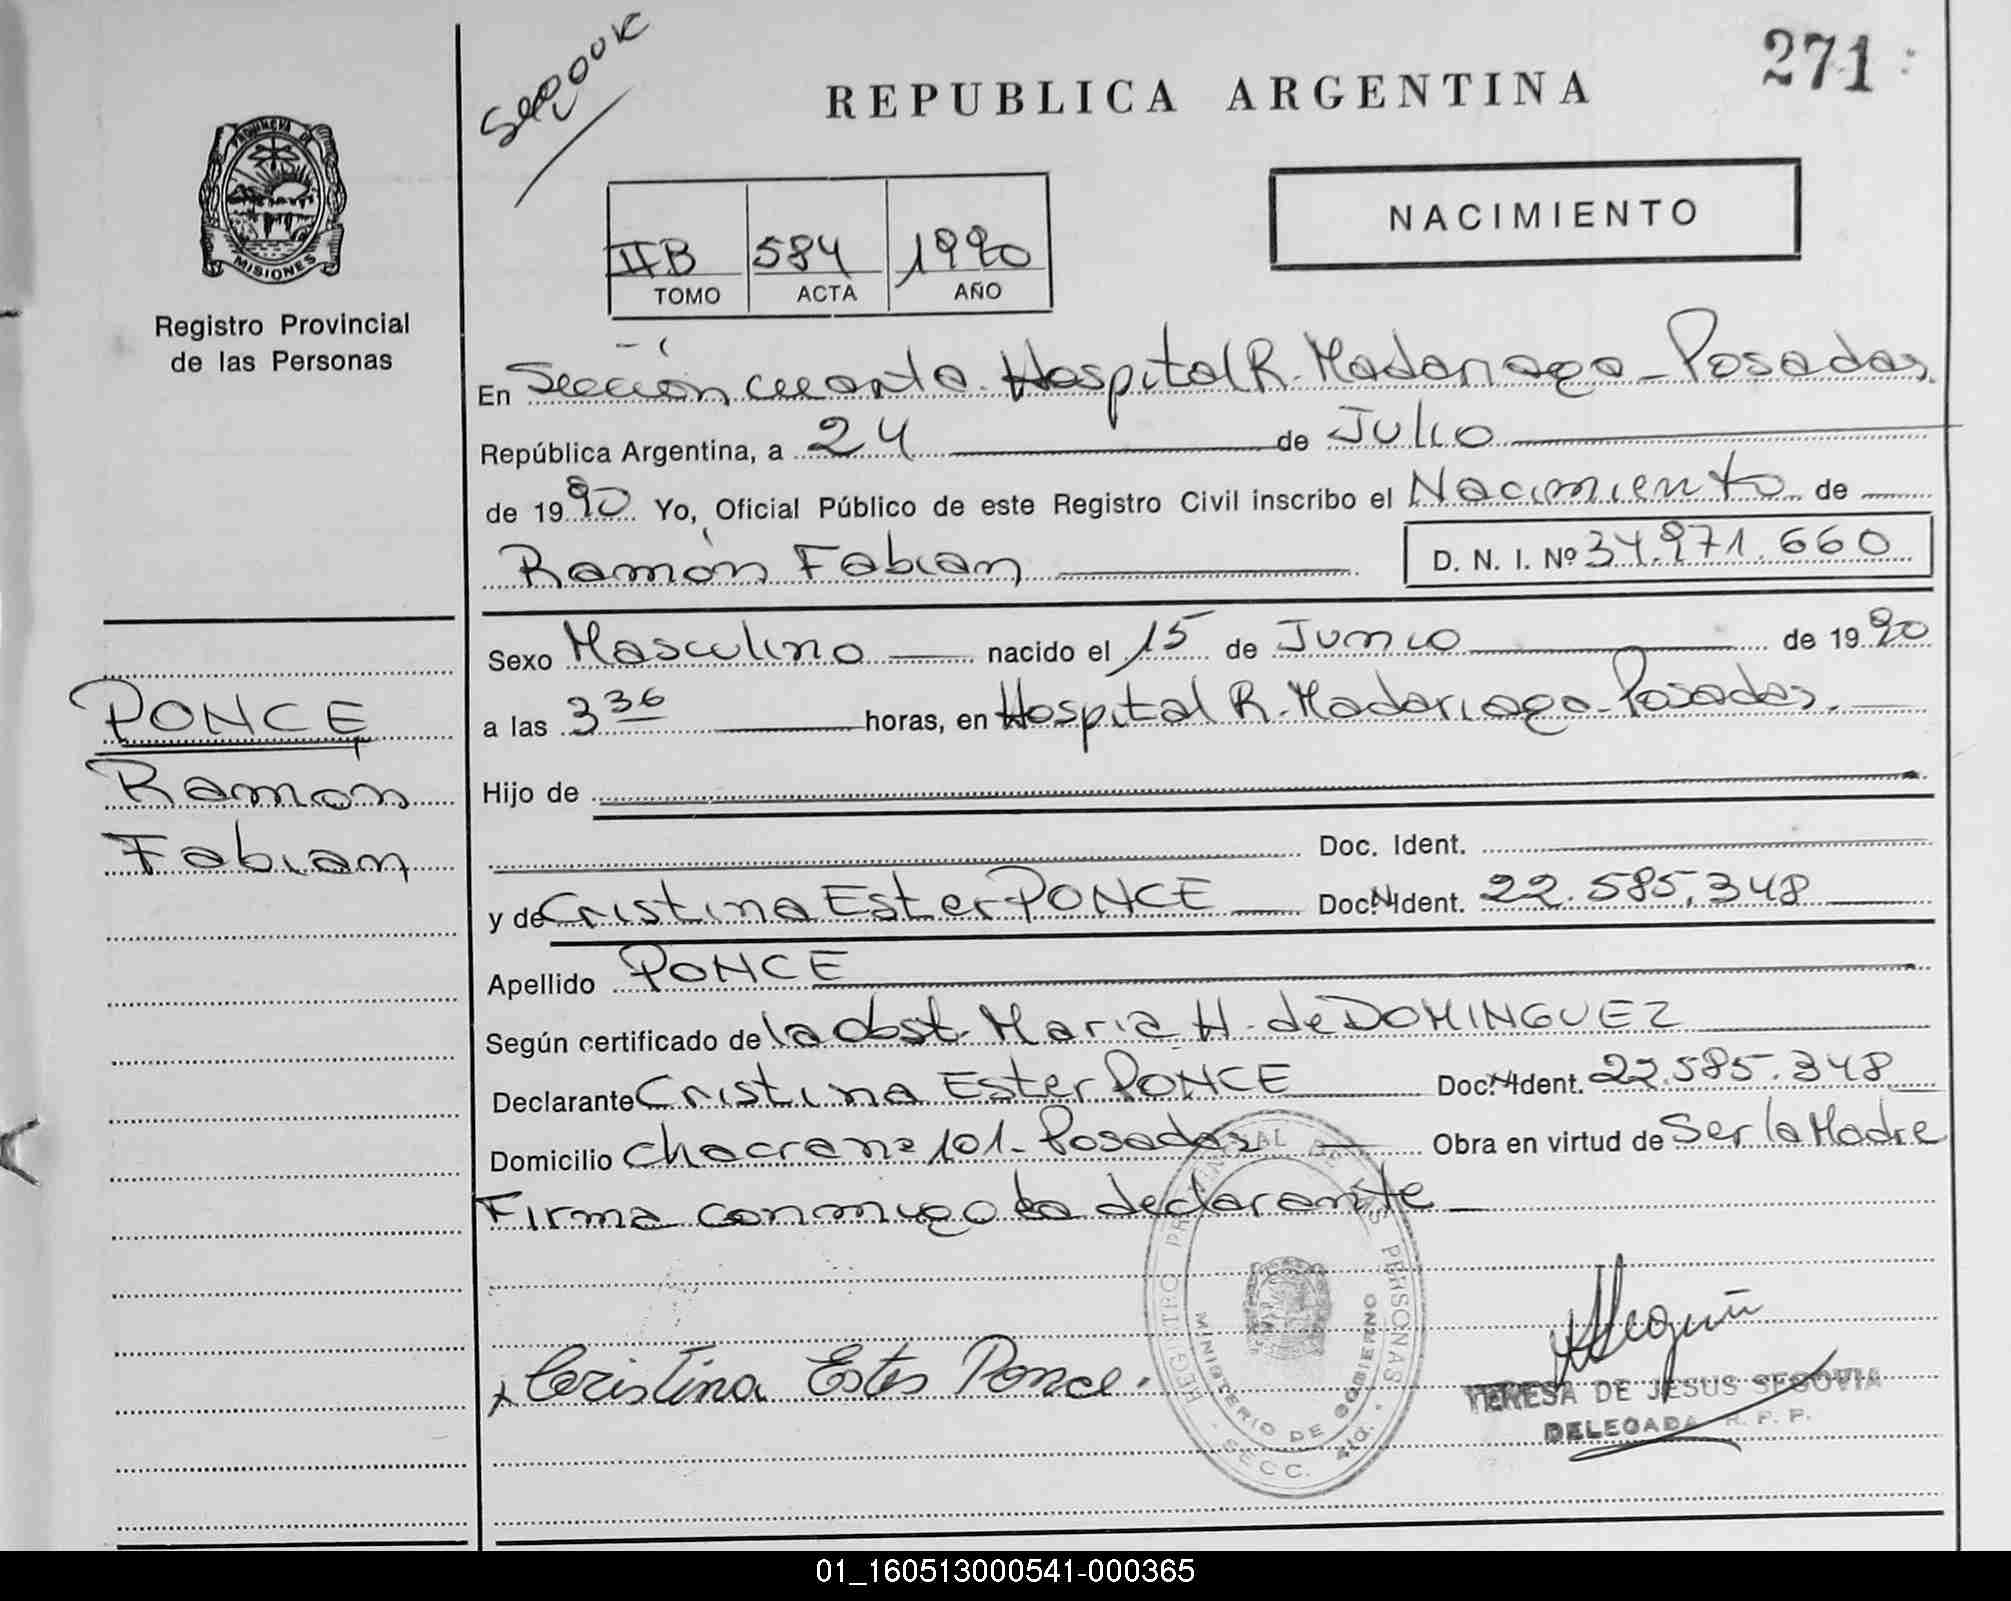 271
REPUBLICA ARGENTINA
PROVINCIA DE
MISIONES
Registro Provincial
de las Personas
NACIMIENTO
IIB 584 1990
TOMO ACTA AÑO
En Sección cuarta. Hospital R. Madariaga - Posadas.
República Argentina, a 24 de Julio
de 1990 Yo, Oficial Público de este Registro Civil inscribo el Nacimiento de
Ramón Fabian D. N. I. Nº 34.971.660
Sexo Masculino nacido el 15 de Junio de 1990
a las 3 36 horas, en Hospital R. Madariaga - Posadas.
Hijo de
Doc. Ident.
y de Cristina Ester PONCE Doc. N Ident. 22.585.348
Apellido PONCE
Según certificado de la obst. Maria H. de DOMINGUEZ
Declarante Cristina Ester PONCE Doc. N Ident. 22.585.348
Domicilio Chacra nº 101 - Posadas Obra en virtud de Ser la Madre
Firma conmigo la declarante
PONCE
Ramon
Fabian
x Cristina Ester Ponce.
REGISTRO PROVINCIAL DE LAS PERSONAS
MINISTERIO DE GOBIERNO
SECC. 4ta.
TERESA DE JESUS SEGOVIA
DELEGADA R. P. P.
01_160513000541-000365